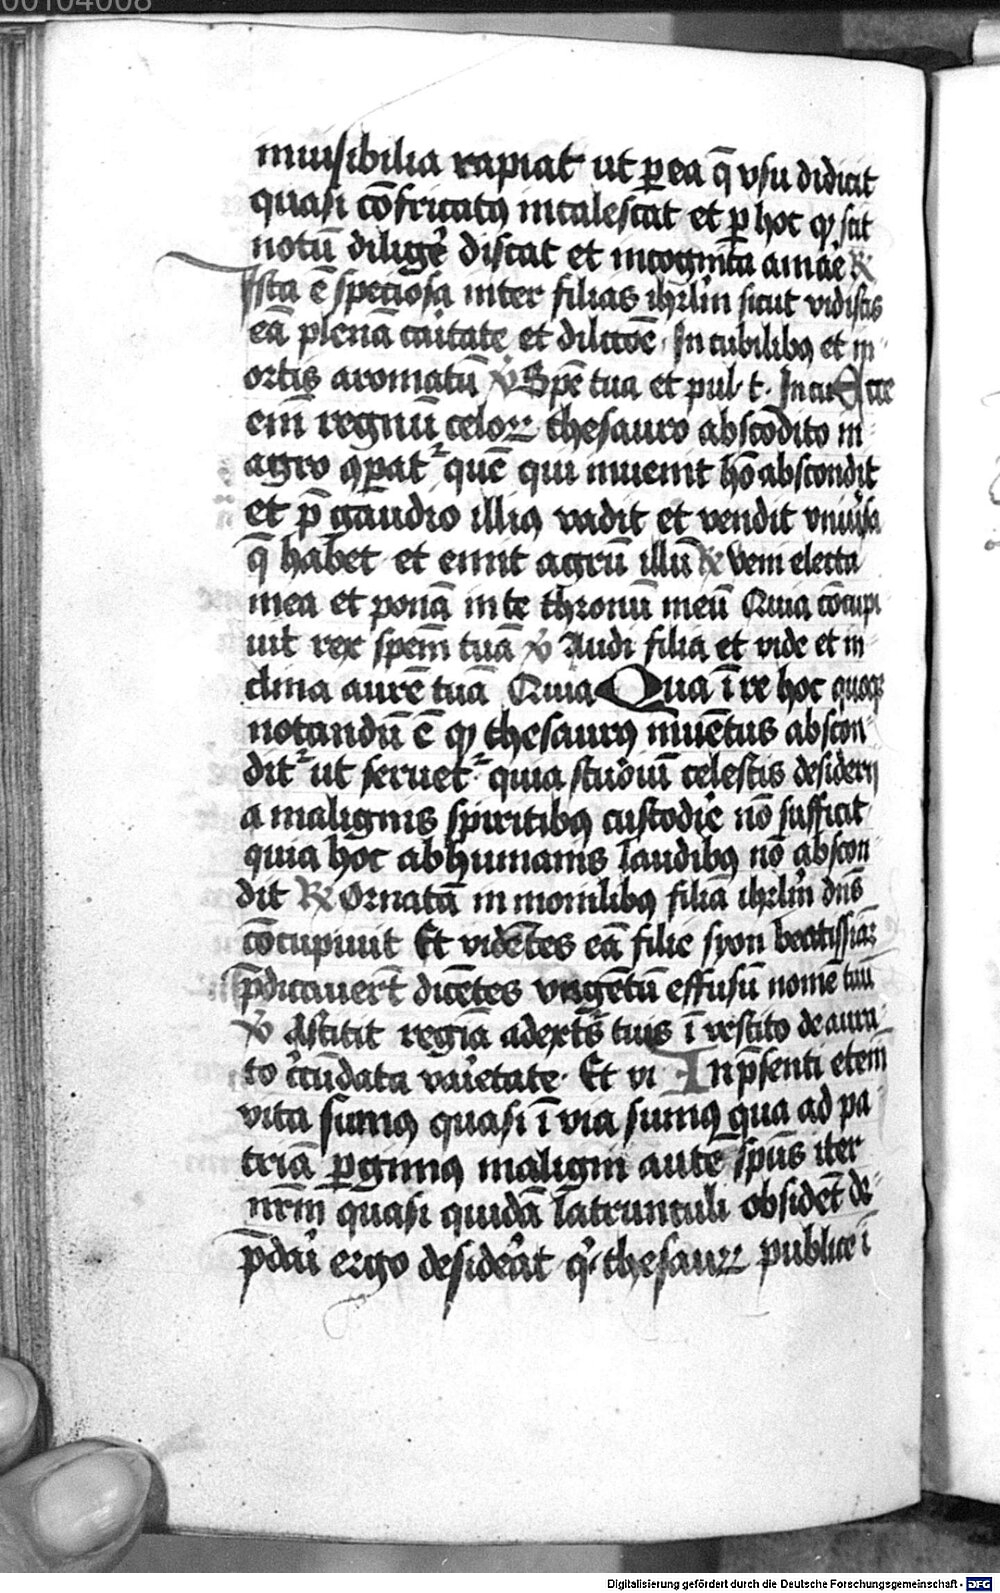 00104008
inuisibilia rapiat ut p ea q̄ vsu didicit
quasi cōfricatꝰ incalescat et p hoc qꝫ scit
notū diligē discat et incognita amaē ℟
Ista ē speciosa inter filias ihrlm̄ sicut vidistis
eā plenā caītate et dilcōē · In cubilibꝰ et in
ortis aromatū ℣ Spē tua et pul· t· In cu
em̄ regnū celoꝝ thesauro abscōdito in
agro ꝯpat᷑ quē qui inuenit hō abscondit
et p̄ gaudio illiꝰ vadit et vendit vniūsa
q̄ habet et emit agrū illū ℟ Veni electa
mea et ponā in te thronū meū Quia cōcupi
uit rex speciem tuā ℣ Audi filia et vide et in
clina aurē tuā Quia Qua ī re hoc quoqꝫ
notandū ē qꝫ thesaurꝰ inuētus abscon
dit᷑ ut seruet᷑ quia studiū celestis desiderij
a malignis spiritibꝰ custodīe nō sufficit
quia hoc ab humanis laudibꝰ nō abscon
dit ℟ Ornatā in monilibꝰ filiā ihrlm̄ dn̄s
cōcupiuit Et vidētes eā filie syon beatissīaꝫ
p̄dicauer̄t dicētes vngētū effusū nomē tuū
℣ Astitit regīa a dextꝭ tuis ī vestito deaura
to c̄cūdata vaīetate · Et vi In p̄senti etem̄
vita sumꝰ quasi ī via sumꝰ qua ad pa
triā pgimꝰ maligni autē spūs iter
nr̄m quasi quidā latrunculi obsidēt de
p̄dāī ergo desiderat q· thesauꝝ publice ī
Digitalisierung gefördert durch die Deutsche Forschungsgemeinschaft - DFG